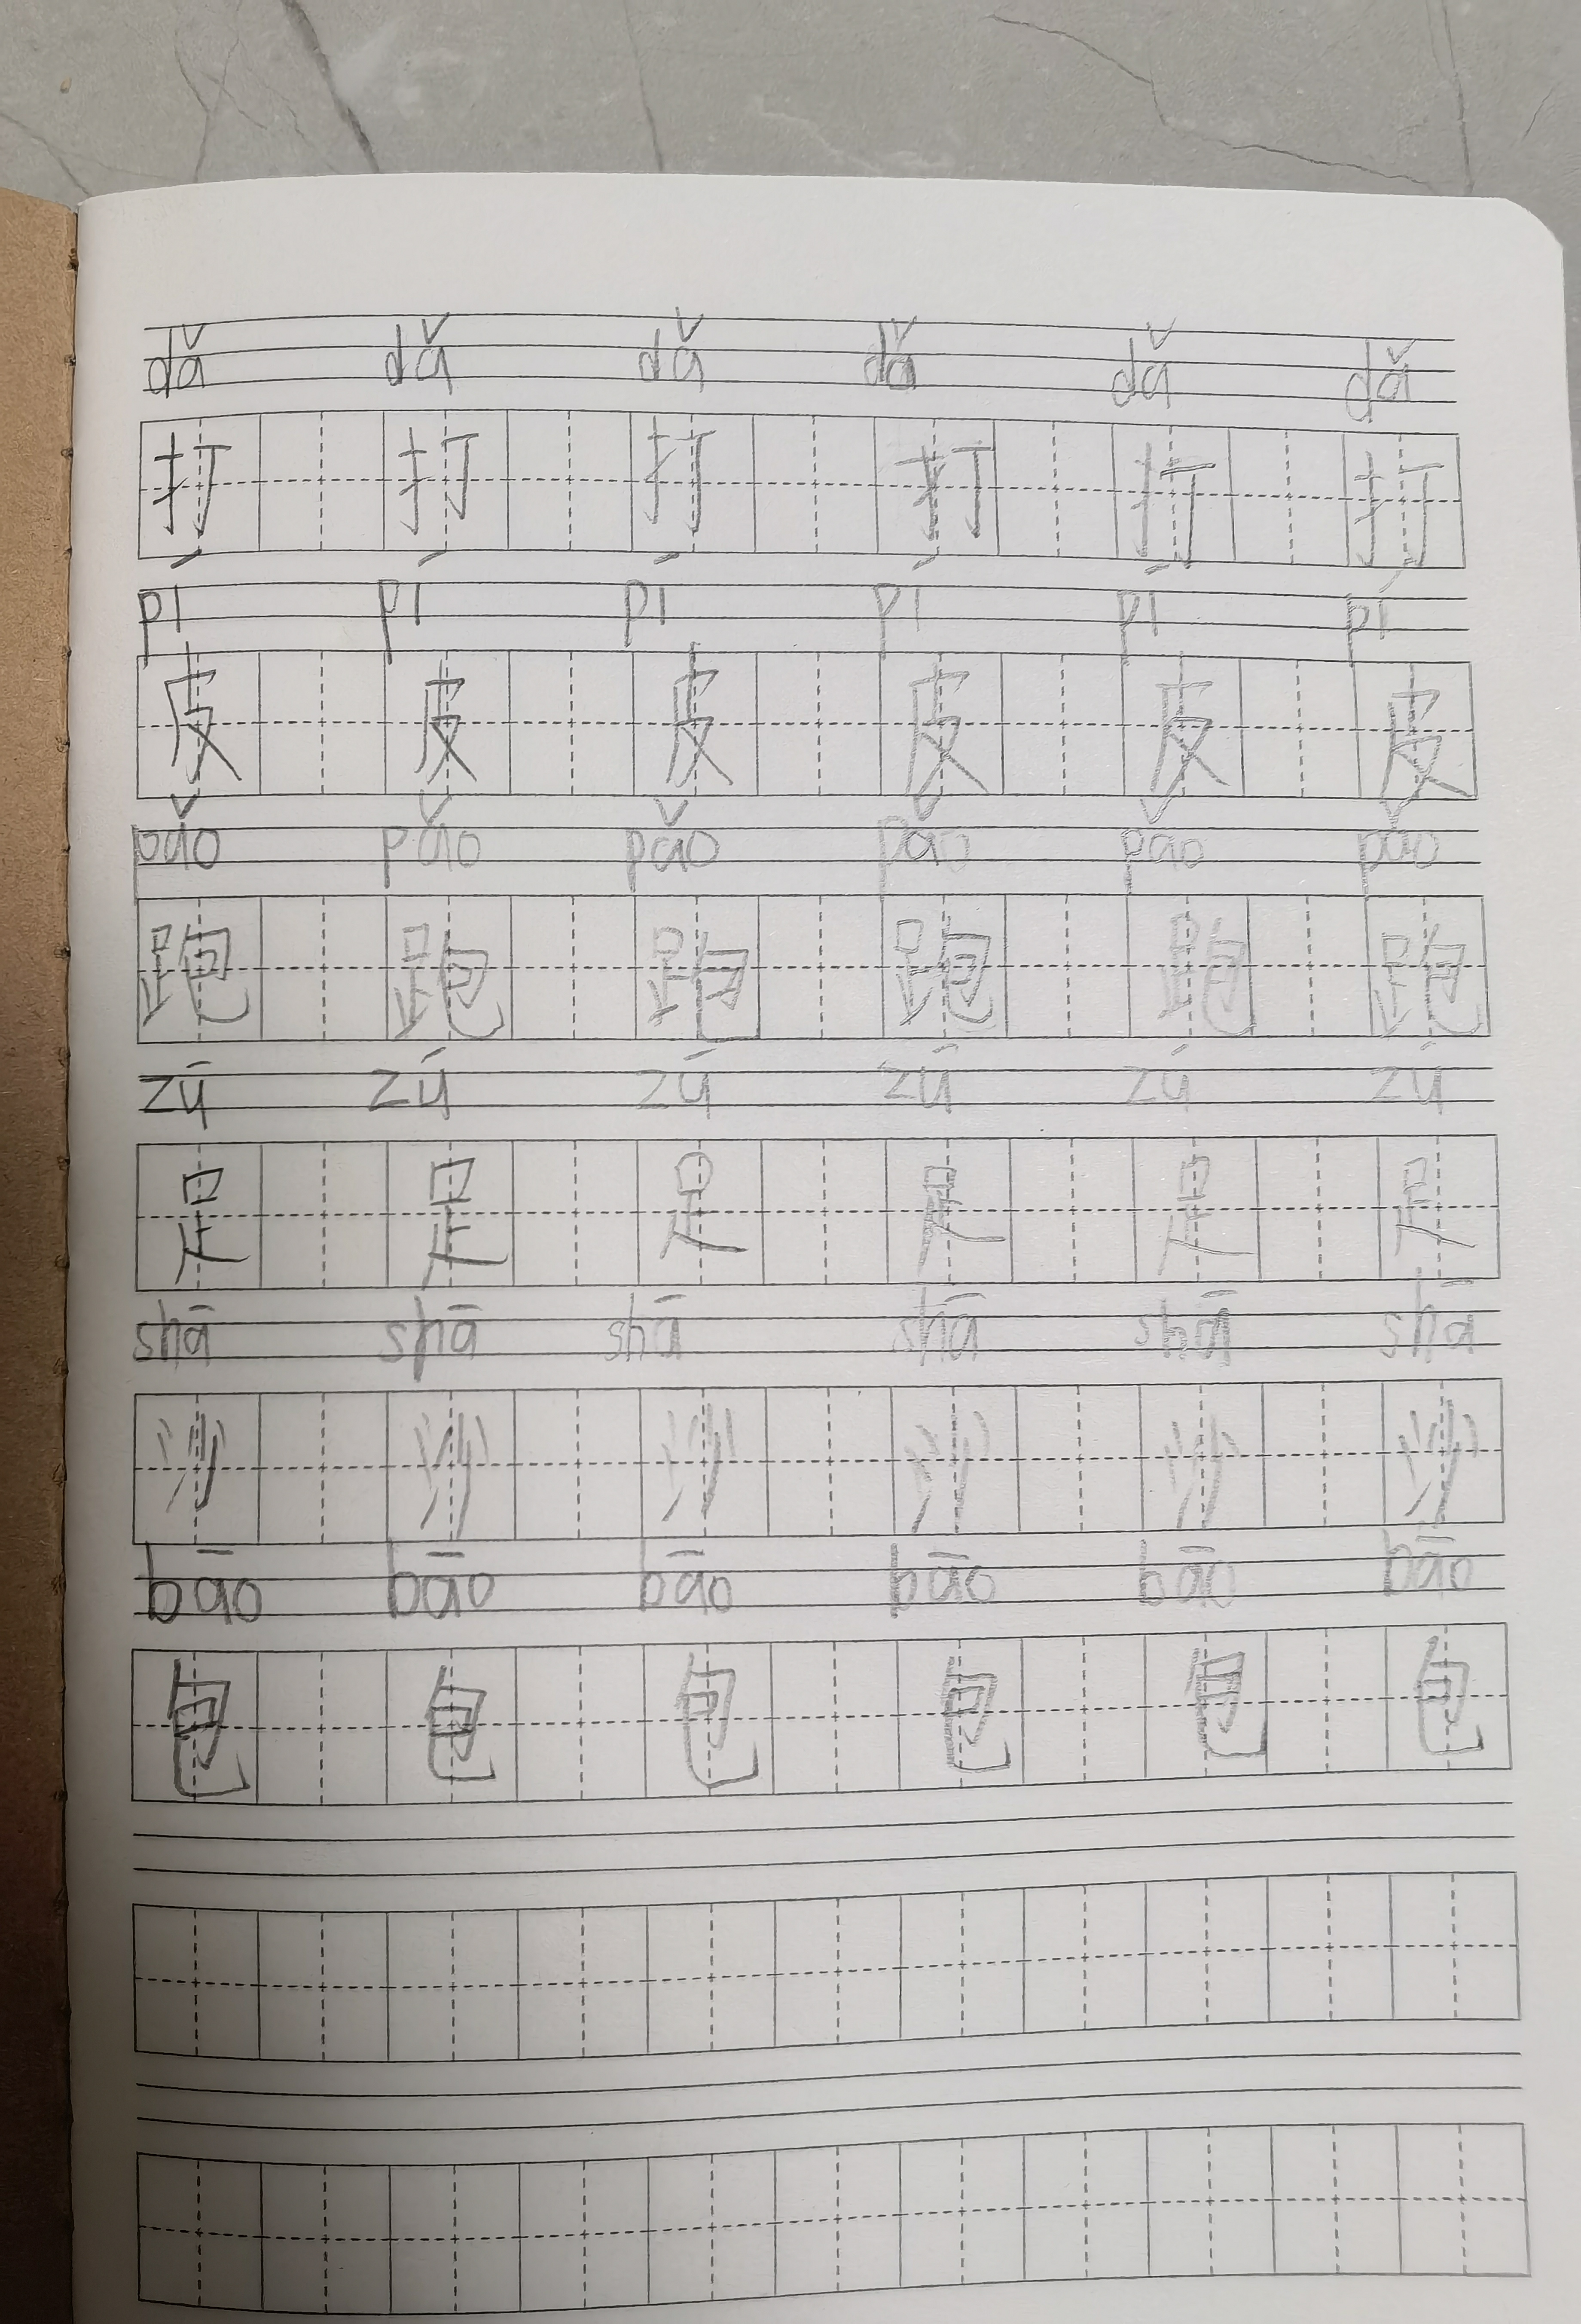 dǎ dǎ dǎ dǎ dǎ dǎ
打 打 打 打 打 打
pí pí pí pí pí pí
皮 皮 皮 皮 皮 皮
pǎo pǎo pǎo pǎo pǎo pǎo
跑 跑 跑 跑 跑 跑
zú zú zú zú zú zú
足 足 足 足 足 足
shā shā shā shā shā shā
沙 沙 沙 沙 沙 沙
bāo bāo bāo bāo bāo bāo
包 包 包 包 包 包